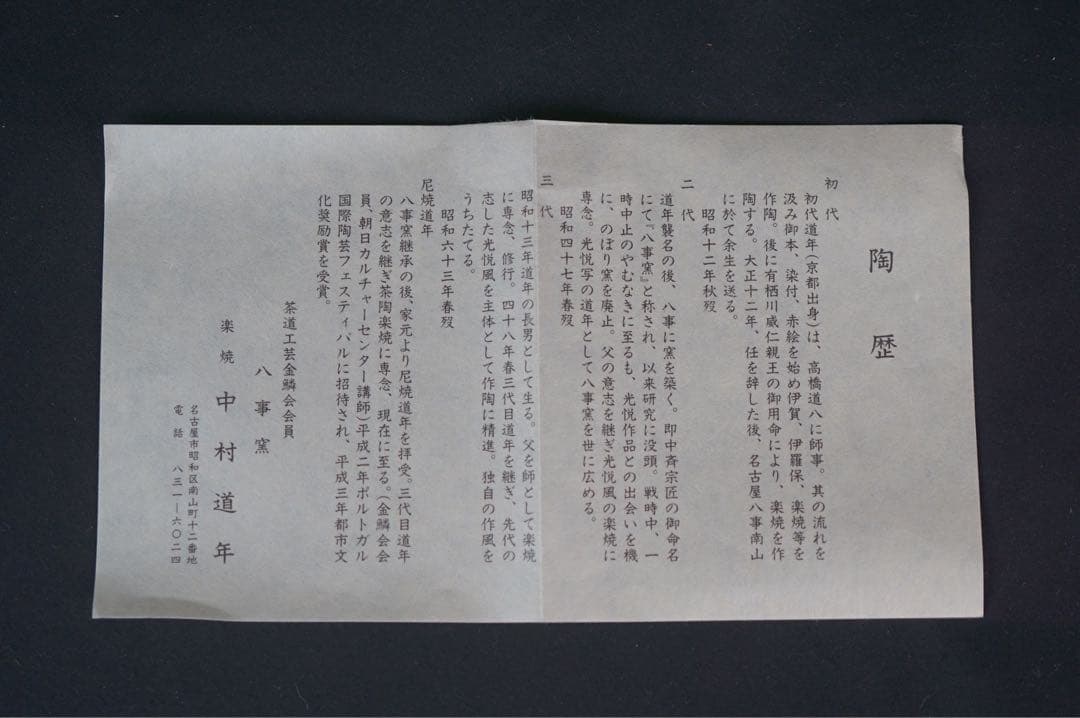 陶歴
初代
初代道年(京都出身)は、高橋道八に師事。其の流れを
汲み御本、染付、赤絵を始め伊賀、伊羅保、楽焼等を
作陶。後に有栖川威仁親王の御用命により、楽焼を作
陶する。大正十二年、任を辞した後、名古屋八事南山
に於て余生を送る。
昭和十二年秋歿
二代
道年襲名の後、八事に窯を築く。即中斉宗匠の御命名
にて『八事窯』と称され、以来研究に没頭。戦時中、一
時中止のやむなきに至るも、光悦作品との出会いを機
に、のぼり窯を廃止。父の意志を継ぎ光悦風の楽焼に
専念。光悦写の道年として八事窯を世に広める。
昭和四十七年春歿
三代
昭和十三年道年の長男として生る。父を師として楽焼
に専念、修行。四十八年春三代目道年を継ぎ、先代の
志した光悦風を主体として作陶に精進。独自の作風を
うちたてる。
昭和六十三年春歿
尼焼道年
八事窯継承の後、家元より尼焼道年を拝受。三代目道年
の意志を継ぎ茶陶楽焼に専念、現在に至る。(金鱗会会
員、朝日カルチャーセンター講師)平成二年ポルトガル
国際陶芸フェスティバルに招待され、平成三年都市文
化奨励賞を受賞。
茶道工芸金鱗会会員
八事窯
楽焼 中村道年
名古屋市昭和区南山町十二番地
電話 八三一―六〇二四